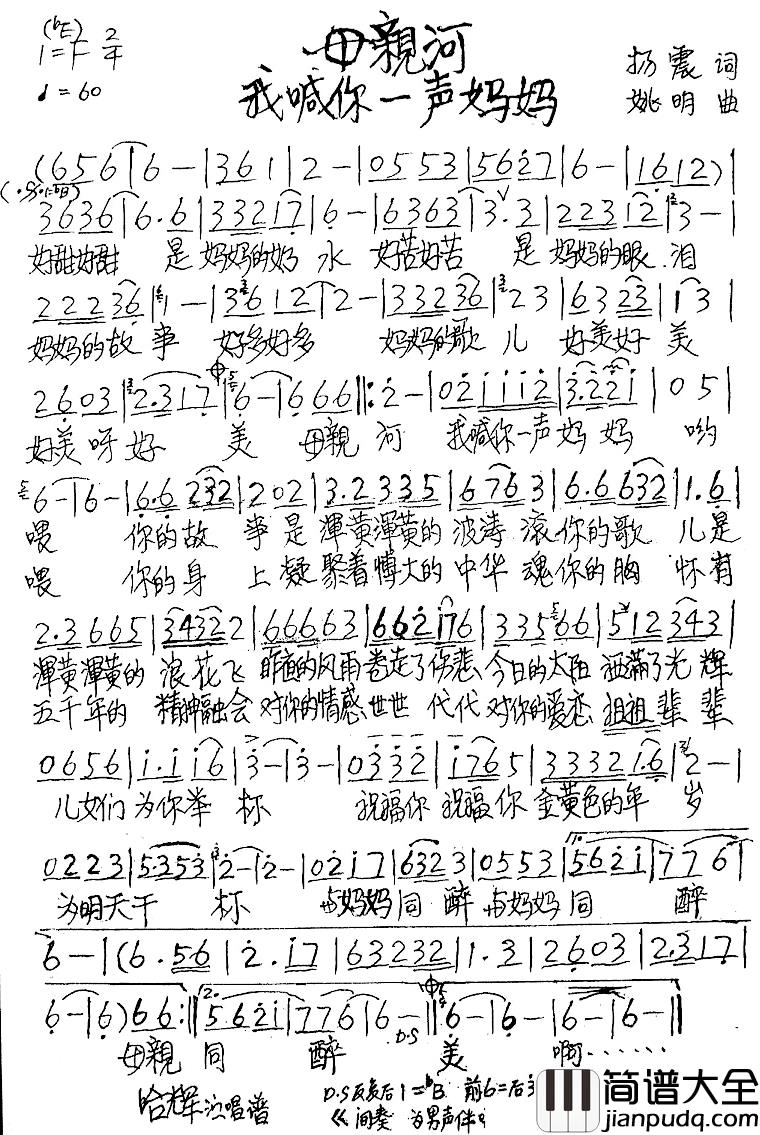 (♭E)
1=F 2/4
♩=60
母親河
我喊你一声妈妈
扬震 词
姚明 曲
(656|6-|361|2-|0553|5627|6-|1612)|
3636|6.6|33217|6-|6363|3.3|22312|3-|
好甜好甜 是妈妈的奶水 好苦好苦 是妈妈的眼泪
22236|1-|3612|2-|33236|23|6323|13|
妈妈的故事 好多好多 妈妈的歌儿 好美好美
2603|2.317|6-|666‖:2-|021112|3.221|05|
好美呀好美 母親河 我喊你一声妈妈 哟
6-|6-|6.6232|202|3.2335|6763|6.6632|1.6|
喂 你的故事是渾黄渾黄的波涛滚你的歌儿是
喂 你的身上凝聚着博大的中华魂你的胸怀有
2.3665|34322|66663|662176|33566|512343|
渾黄渾黄的浪花飞 昨夜的风雨卷走了伤悲今日的太阳洒满了光辉
五千年的精神融会 对你的情感世世代代对你的爱恋祖祖辈辈
0656|1.116|3-|3-|0332|1765|333216|2-|
儿女们为你举杯 祝福你祝福你金黄色的年岁
0223|5353|2-|2-|0217|6323|0553|5621|776|
为明天干杯 与妈妈同醉与妈妈同醉
6-|(6.56|2.17|63232|1.3|2603|2.317|
6-|6)66:‖5621|776|6-‖6-|6-|6-|6-‖
D.S
母親 同醉 美 啊……
哈辉演唱谱
D.S反复后1=♭B 前6=后3
《 间奏 为男声伴
简谱大全
jianpudq.com